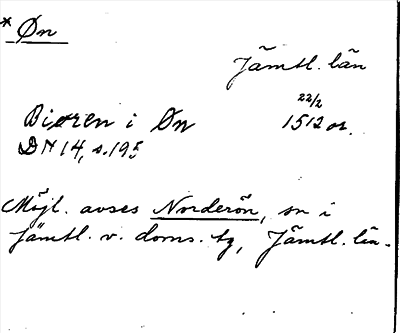 * Øn
Jämtl. län
Biøren i Øn 22/2 1512 or.
DN 14, s. 195
Möjl. avses Norderön, sn i
Jämtl. v. doms. tg, Jämtl. län.